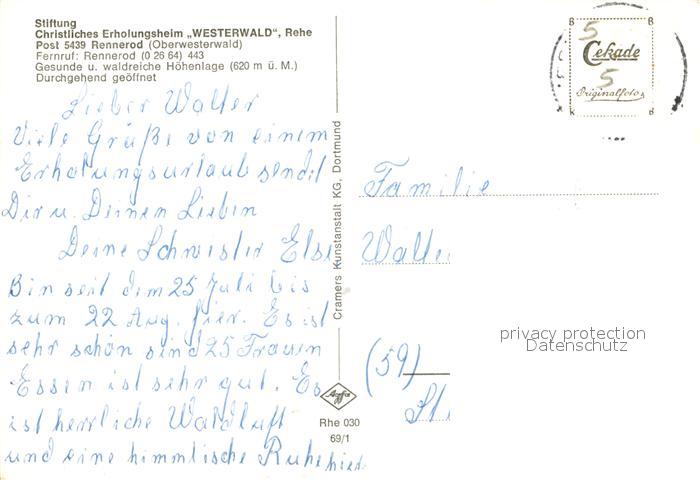 Stiftung
Christliches Erholungsheim „WESTERWALD", Rehe
Post 5439 Rennerod (Oberwesterwald)
Fernruf: Rennerod (0 26 64) 443
Gesunde u. waldreiche Höhenlage (620 m ü. M.)
Durchgehend geöffnet
Lieber Walter
Viele Grüße von einem
Erholungsurlaub sendet
Dir u. Deinen Lieben
Deine Schwester Else
Bin seit dem 25 Juli bis
zum 22 Aug. hier. Es ist
sehr schön sind 25 Frauen
Essen ist sehr gut. Es
ist herrliche Waldluft
und eine himmlische Ruhe hier
Cramers Kunstanstalt KG, Dortmund
Agfa
Rhe 030
69/1
B B
5
Cekade
5
Originalfoto
K B
Familie
Walte
(59)
privacy protection
Datenschutz